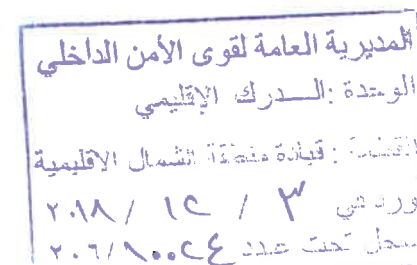 المديرية العامة لقوى الأمن الداخلي
الوحدة : الـــدرك الإقليمي
القطعة : قيادة منطقة الشمال الاقليمية
ورد في ٣ / ١٢ / ٢٠١٨
سجل تحت عدد ٢٠٦/